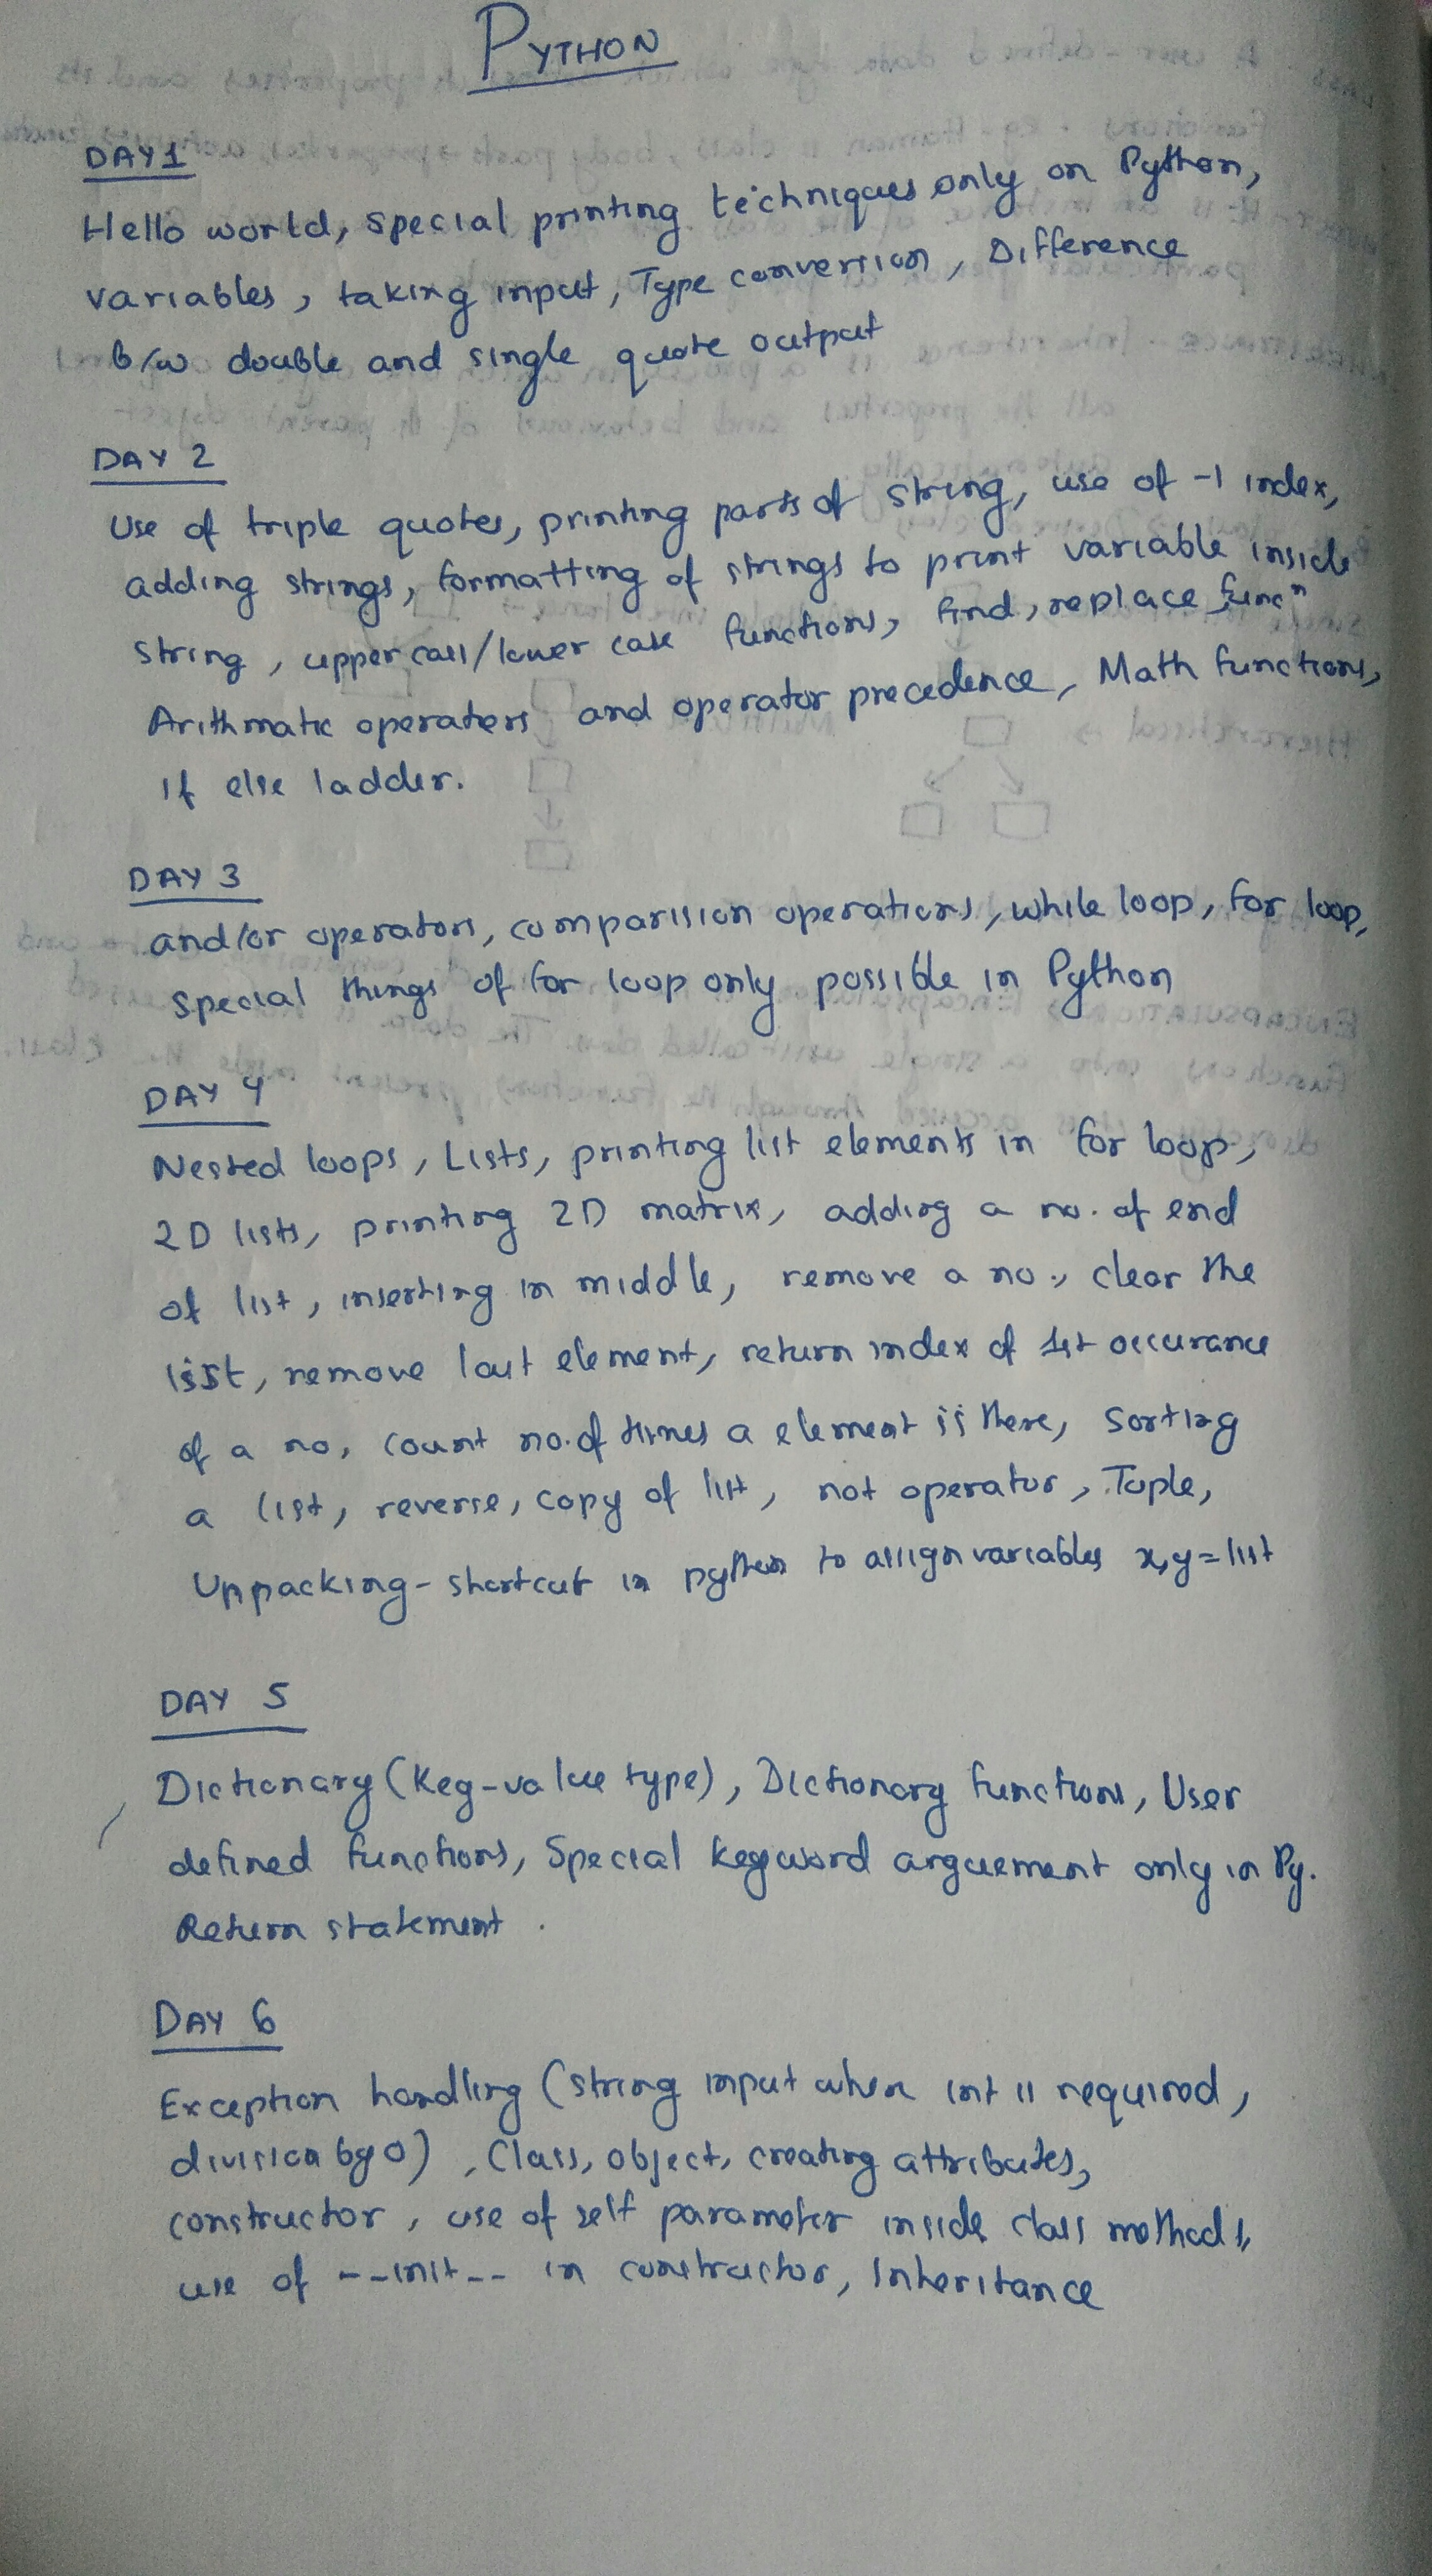 PYTHON
DAY 1
Hello world, special printing techniques only on Python,
variables, taking input, Type conversion, Difference
b/w double and single quote output
DAY 2
Use of triple quotes, printing parts of string, use of -1 index,
adding strings, formatting of strings to print variable inside
string, upper case/lower case functions, find, replace funcn
Arithmatic operators and operator precedence, Math functions,
if else ladder.
DAY 3
and/or operators, comparision operations, while loop, for loop,
special things of for loop only possible in Python
DAY 4
Nested loops, Lists, printing list elements in for loop,
2D lists, printing 2D matrix, adding a no. of end
of list, inserting in middle, remove a no., clear the
list, remove last element, return index of 1st occurance
of a no, count no. of times a element is there, sorting
a list, reverse, copy of list, not operator, Tuple,
Unpacking - shortcut in python to assign variables x,y=list
DAY 5
Dictionary (Key-value type), Dictionary functions, User
defined functions, Special keyword arguement only in Py.
Return statement.
DAY 6
Exception handling (string input when int is required,
division by 0), Class, object, creating attributes,
constructor, use of self parameter inside class methods,
use of --init-- in constructor, Inheritance